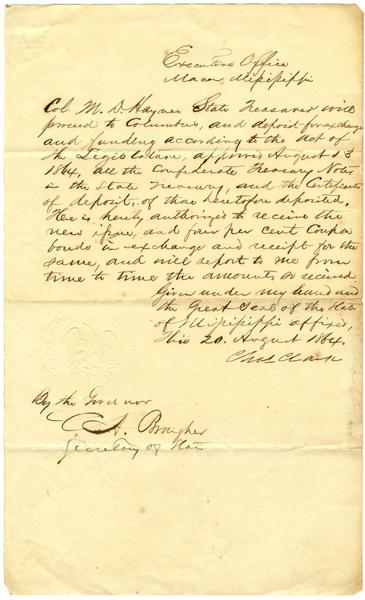 Executive Office
Macon, Mississippi
Col. M. D. Haynes State Treasurer will
proceed to Columbus, and deposit for exchange
and funding according to the act of
the Legislature, approved August 13
1864, all the Confederate Treasury Notes
in the State Treasury, and the Certificates
of deposit, of those heretofore deposited.
He is hereby authorized to receive the
new issue, and four per cent Coupon
bonds in exchange and receipt for the
same, and will report to me from
time to time the amounts so received
Given under my hand and
the Great Seal of the State
of Mississippi affixed,
this 20. August 1864.
Chas Clark
By the Governor
C. A. Brougher
Secretary of State